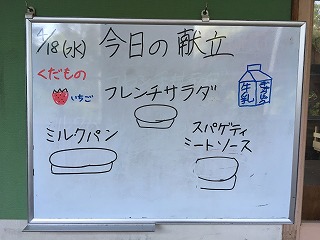 4/18(水) 今日の献立
くだもの
いちご
フレンチサラダ
牛乳
ミルクパン
スパゲティ
ミートソース